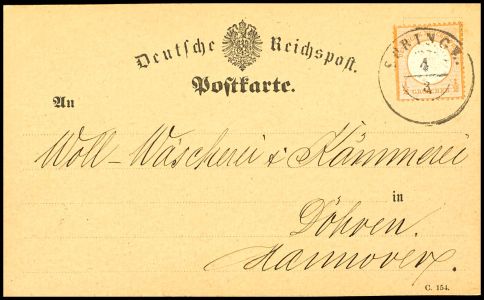 Deutsche Reichspost.
Postkarte.
SPRINGE.
4
3
An
Woll-Wäscherei & Kämmerei
in
Döhren.
Hannover.
C. 154.